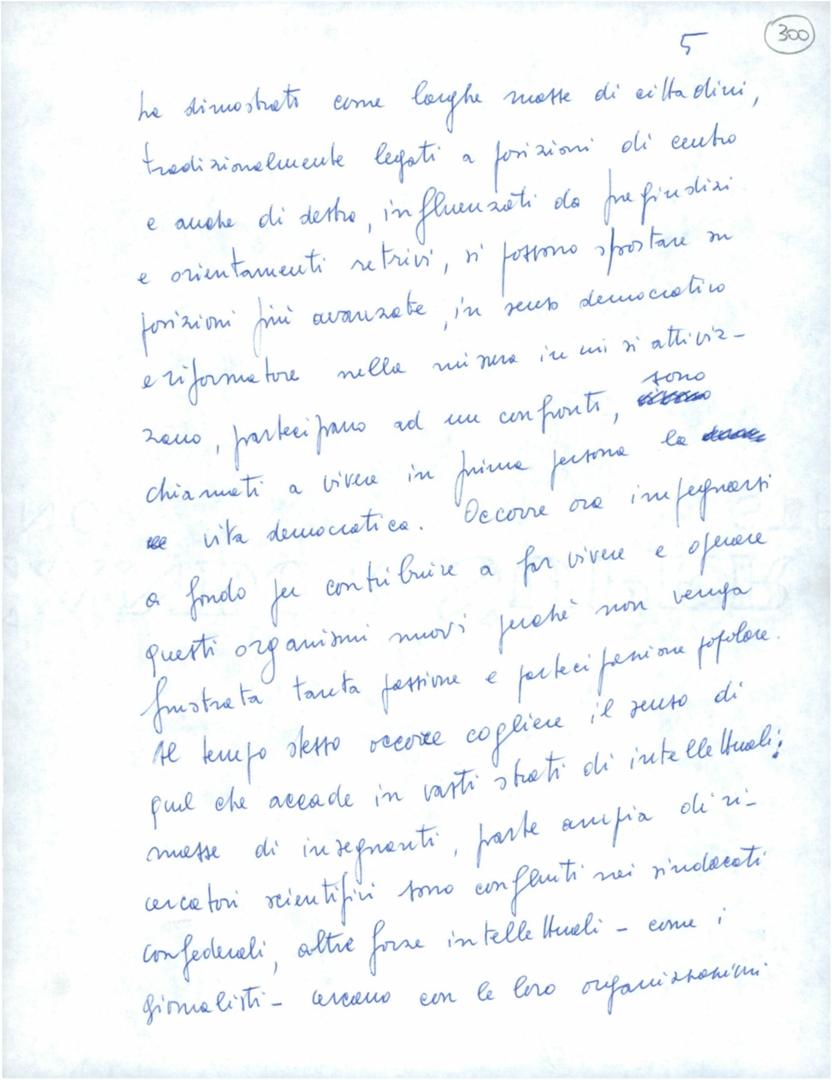 300
5
ha dimostrato come larghe masse di cittadini,
tradizionalmente legati a posizioni di centro
e anche di destra, influenzati da pregiudizi
e orientamenti retrivi, si possono spostare su
posizioni più avanzate, in senso democratico
e riformatore nella misura in cui si attiviz-
sono
zano, partecipano ad un confronto,
chiamati a vivere in prima persona la
vita democratica. Occorre ora impegnarsi
a fondo per contribuire a far vivere e operare
questi organismi nuovi perché non venga
frustrata tanta passione e partecipazione popolare.
Al tempo stesso occorre cogliere il senso di
quel che accade in vasti strati di intellettuali;
masse di insegnanti, parte ampia di ri-
cercatori scientifici sono confluiti nei sindacati
confederali, altre forze intellettuali - come i
giornalisti - cercano con le loro organizzazioni